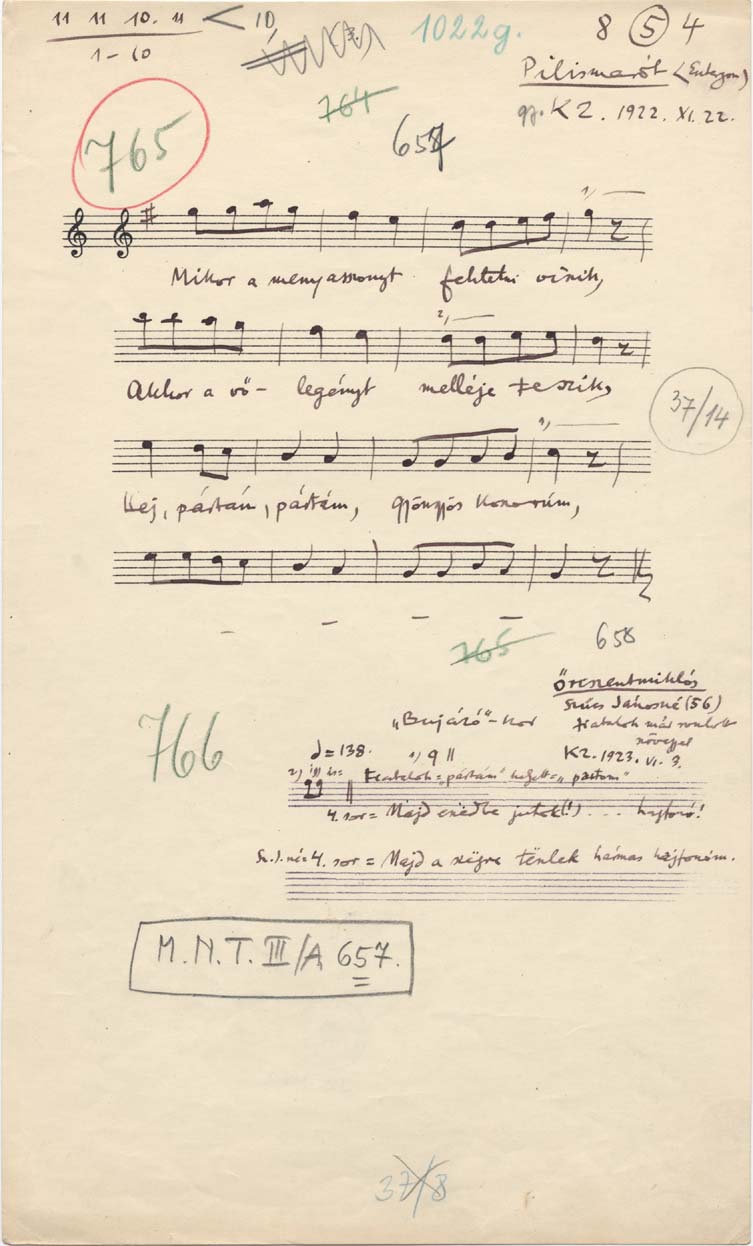 11 11 10. 11 < 10
1022g.
8 5 4
1-10
Pilismarót (Esztergom)
gy. KZ. 1922. XI. 22.
764
765
657
1)
Mikor a menyasszonyt fektetni viszik,
2)
Akkor a vő- legényt melléje teszik,
37/14
Hej, pártám, pártám, gyöngyös koszorúm,
765
658
Őrszentmiklós
Szűcs Jánosné (56)
766
"Bujázó"-kor
fiatalok már romlott
szöveggel
♩=138.
KZ. 1923. VI. 3.
2) így is:
Fiatalok = "pártám" helyett = "partom"
4. sor = Majd eszedbe jutok(!) ... hajfonó!
Sz. J. né = 4. sor = Majd a szögre teszlek hármas hajfonóm.
M.N.T. III/A 657.
37/8